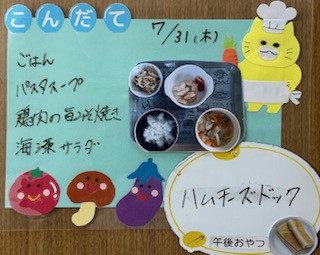 こんだて
7/31(木)
ごはん
パスタスープ
鶏肉の塩こうじ焼き
海藻サラダ
ハムチーズドック
午後おやつ